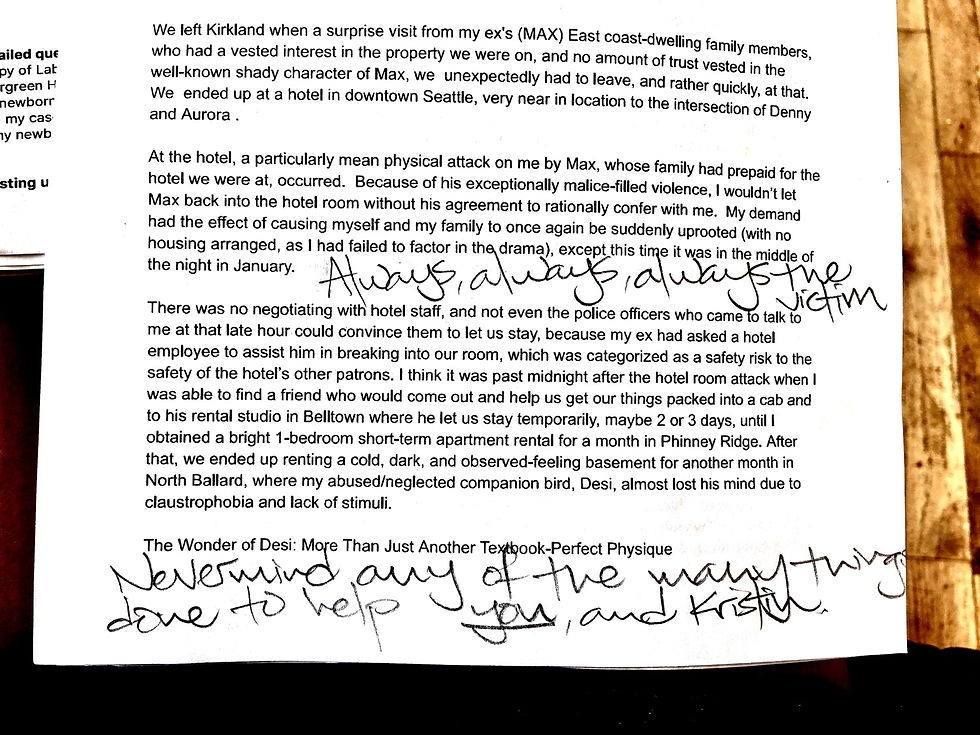 ailed que
py of Lab
rgreen H
newborn
my cas
ny newb
sting u
We left Kirkland when a surprise visit from my ex's (MAX) East coast-dwelling family members,
who had a vested interest in the property we were on, and no amount of trust vested in the
well-known shady character of Max, we unexpectedly had to leave, and rather quickly, at that.
We ended up at a hotel in downtown Seattle, very near in location to the intersection of Denny
and Aurora .
At the hotel, a particularly mean physical attack on me by Max, whose family had prepaid for the
hotel we were at, occurred. Because of his exceptionally malice-filled violence, I wouldn't let
Max back into the hotel room without his agreement to rationally confer with me. My demand
had the effect of causing myself and my family to once again be suddenly uprooted (with no
housing arranged, as I had failed to factor in the drama), except this time it was in the middle of
the night in January.
Always, always, always the
victim
There was no negotiating with hotel staff, and not even the police officers who came to talk to
me at that late hour could convince them to let us stay, because my ex had asked a hotel
employee to assist him in breaking into our room, which was categorized as a safety risk to the
safety of the hotel's other patrons. I think it was past midnight after the hotel room attack when I
was able to find a friend who would come out and help us get our things packed into a cab and
to his rental studio in Belltown where he let us stay temporarily, maybe 2 or 3 days, until I
obtained a bright 1-bedroom short-term apartment rental for a month in Phinney Ridge. After
that, we ended up renting a cold, dark, and observed-feeling basement for another month in
North Ballard, where my abused/neglected companion bird, Desi, almost lost his mind due to
claustrophobia and lack of stimuli.
The Wonder of Desi: More Than Just Another Textbook-Perfect Physique
Nevermind any of the many things
done to help you, and Kristin.